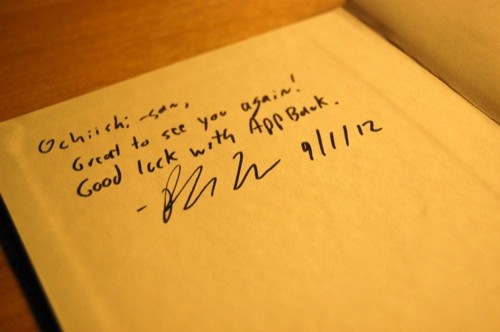 Ochiishi-san,
Great to see you again!
Good luck with AppBank.
9/1/12